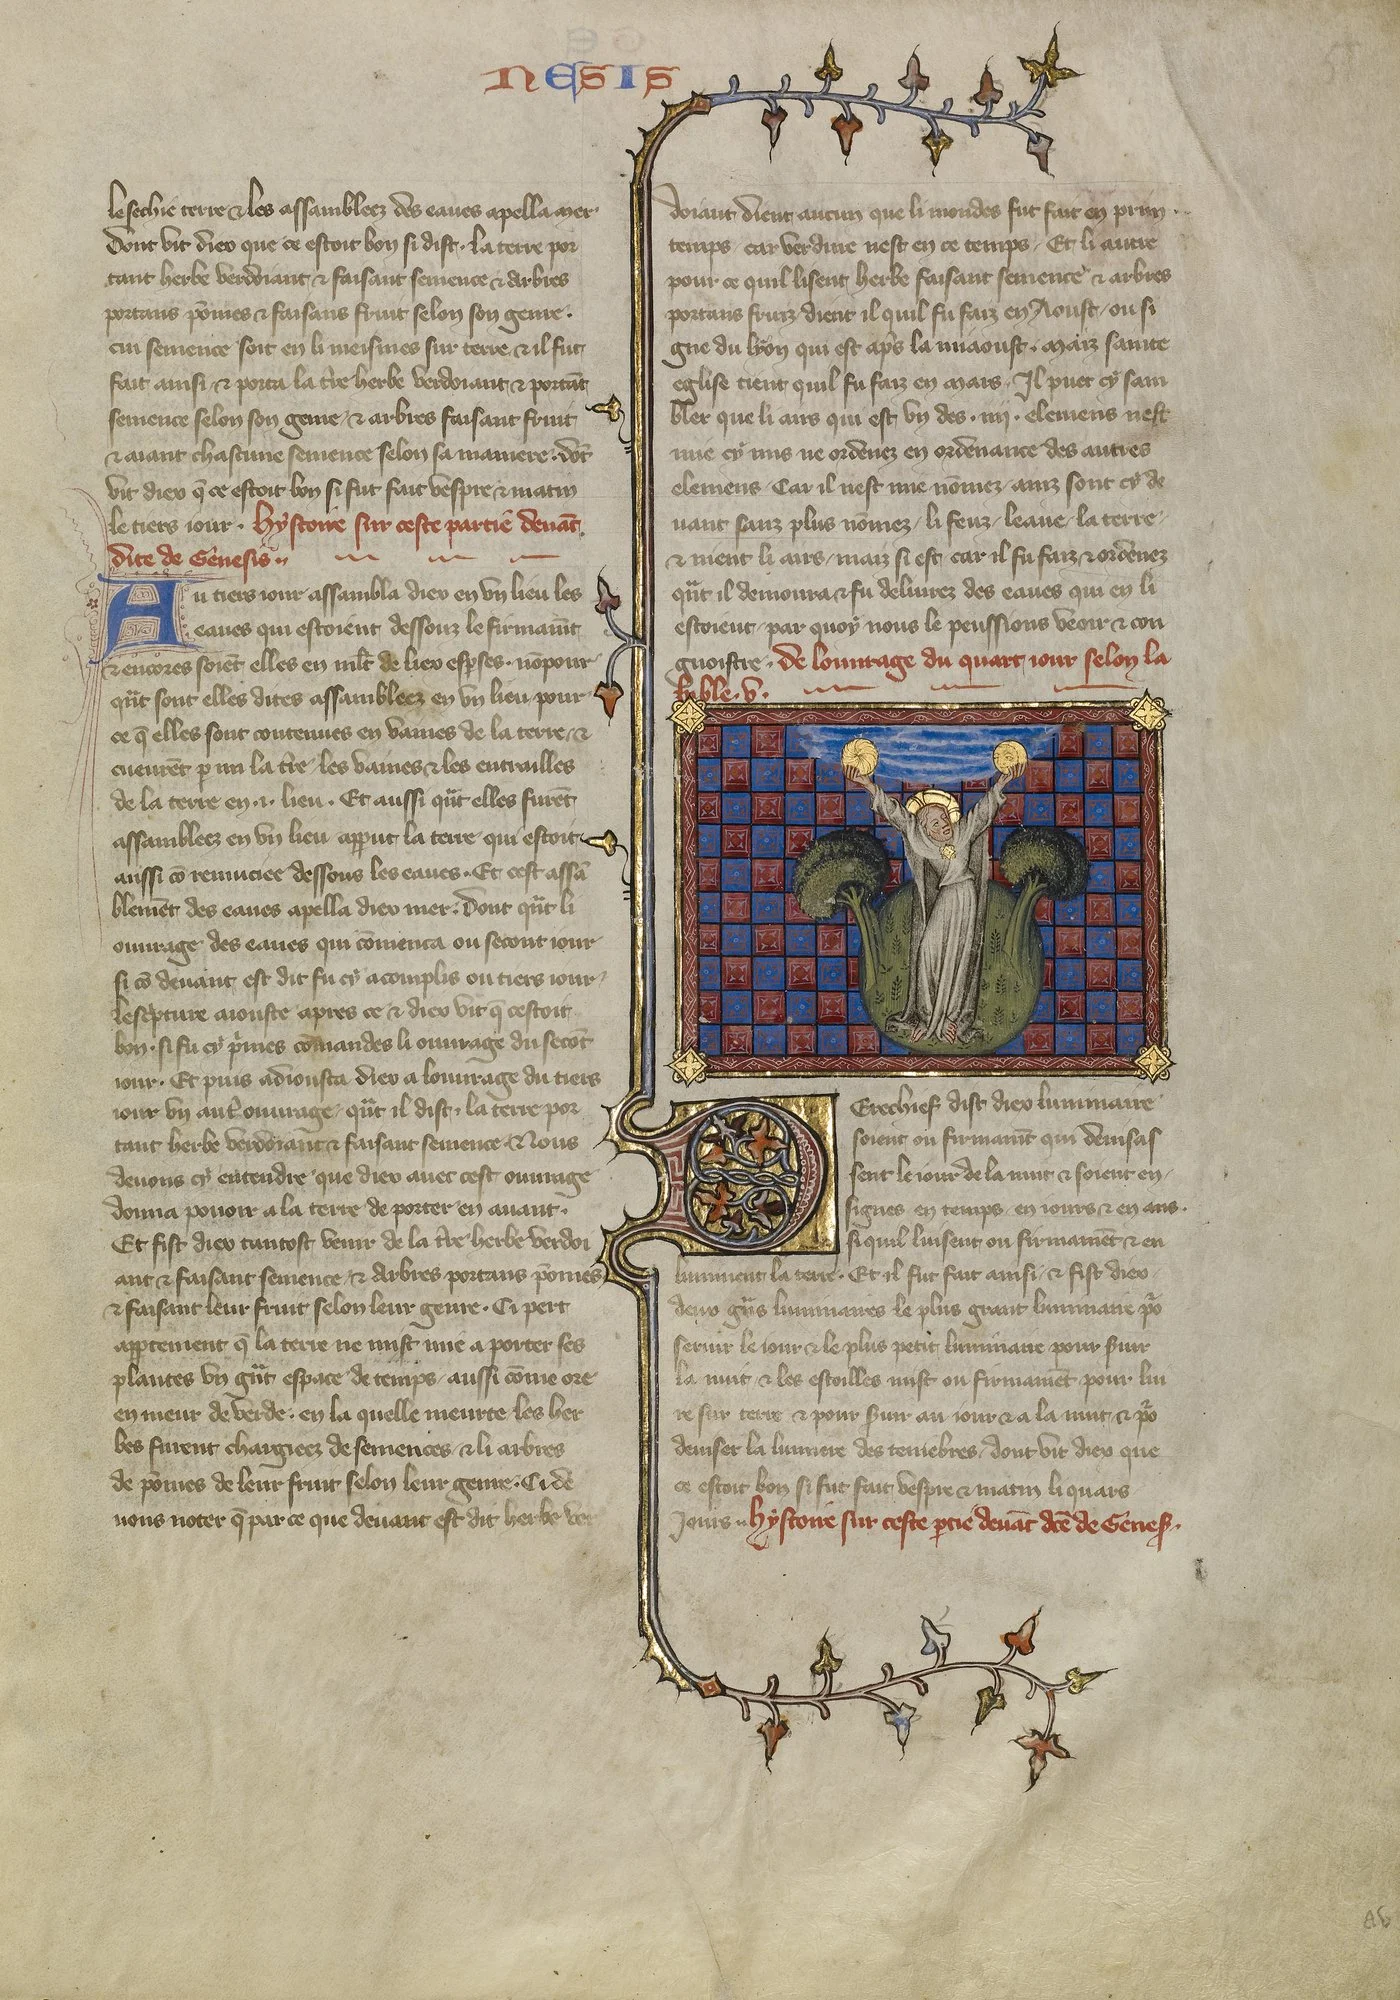 NESIS
le sechie terre & les assambleez des eaues apella mer.
Dont vit diex que ce estoit bon si dist. la terre por
tant herbe verdoiant & faisant semence & arbres
portans põmes & faisans fruit selon son genre.
cui semence soit en li meismes sur terre & il fut
fait ainsi & porta la tr̃e herbe verdoiant & portãt
semence selon son genre & arbres faisant fruit
& aiant chascune semence selon sa maniere. dõt
vit diex q̃ ce estoit bon si fut fait vespre & matin
le tiers iour. hystoire sur ceste partie deuãt
dite de Genesis
Au tiers iour assambla diex en vn lieu les
eaues qui estoient dessouz le firmamt̃
& encores soiẽt elles en mlt̃ de liex esp̃ses. nõpour
qũt sont elles dites assambleez en vn lieu pour
ce q̃ elles sont contenues en vaines de la terre &
cueurẽt p mi la tr̃e les vaines & les entrailles
de la terre en .i. lieu. Et aussi qũt elles furẽt
assambleez en vn lieu apput la terre qui estoit
aussi cõ remuciee dessous les eaues. Et cest assã
blemẽt des eaues apella diex mer. Dont qũt li
ouurage des eaues qui cõmenca ou secont iour
si cõ deuant est dit fu cy acomplis ou tiers iour
lescpture aiouste apres ce & diex vit q̃ cestoit
bon. si fu cy p̃mes cõmandes li ouurage du secõt
iour. Et puis adiousta diex a louurage du tiers
iour vn aut̃ ouurage qũt il dist. la terre por
tant herbe verdoiant & faisant semence. & Nous
deuons cy entendre que diex auec cest ouurage
donna pouoir a la terre de porter en auant.
Et fist diex tantost venir de la tr̃e herbe verdoi
ant & faisant semence & arbres portans põmes
& faisant leur fruit selon leur genre. Ci pert
appertement q̃ la terre ne mist mie a porter ses
plantes vn gr̃t espace de temps aussi cõme ore
en meur de verde. en la quelle meurte les her
bes furent chargieez de semences & li arbres
de põmes de leur fruit selon leur genre. Ci de
uons noter q̃ par ce que deuant est dit herbe ver
doiant dient aucun que li mondes fut fait en prim
temps car verdure nest en ce temps. Et li autre
pour ce quil lisent herbe faisant semence & arbres
portans fruiz dient il quil fu faiz en Aoust ou si
gne du lyon qui est aps̃ la miaoust. maiz sainte
eglise tient quil fu faiz en mars. Il puet cy sam
bler que li airs qui est vn des .iiij. elemens nest
mie cy mis ne ordenez en ordenance des autres
elemens. Car il nest mie nõmez ainz sont cy de
uant sanz plus nõmez li feuz leaue la terre
& nient li airs maiz si est car il fu faiz & ordenez
qũt il demoura & fu deliurez des eaues qui en li
estoient par quoy nous le peussions veoir & con
gnoistre. De louurage du quart iour selon la
bible. v.
Derechief dist diex luminaire
soient ou firmamt̃ qui deuisas
sent le iour de la nuit & soient en
signes en temps en iours & en ans.
si quil luisent ou firmamẽt & en
luminent la terre. Et il fut fait ainsi & fist diex
deux gr̃s luminaires le plus grant luminaire po͛
seruir le iour & le plus petit luminaire pour s̃uir
la nuit & les estoilles mist ou firmamẽt pour lui
re sur terre & pour s̃uir au iour & a la nuit & po͛
deuiser la lumiere des tenebres dont vit diex que
ce estoit bon si fut fait vespre & matin li quars
Jours. hystoire sur ceste p̃tie deuãt dc̃e de Genes̃.